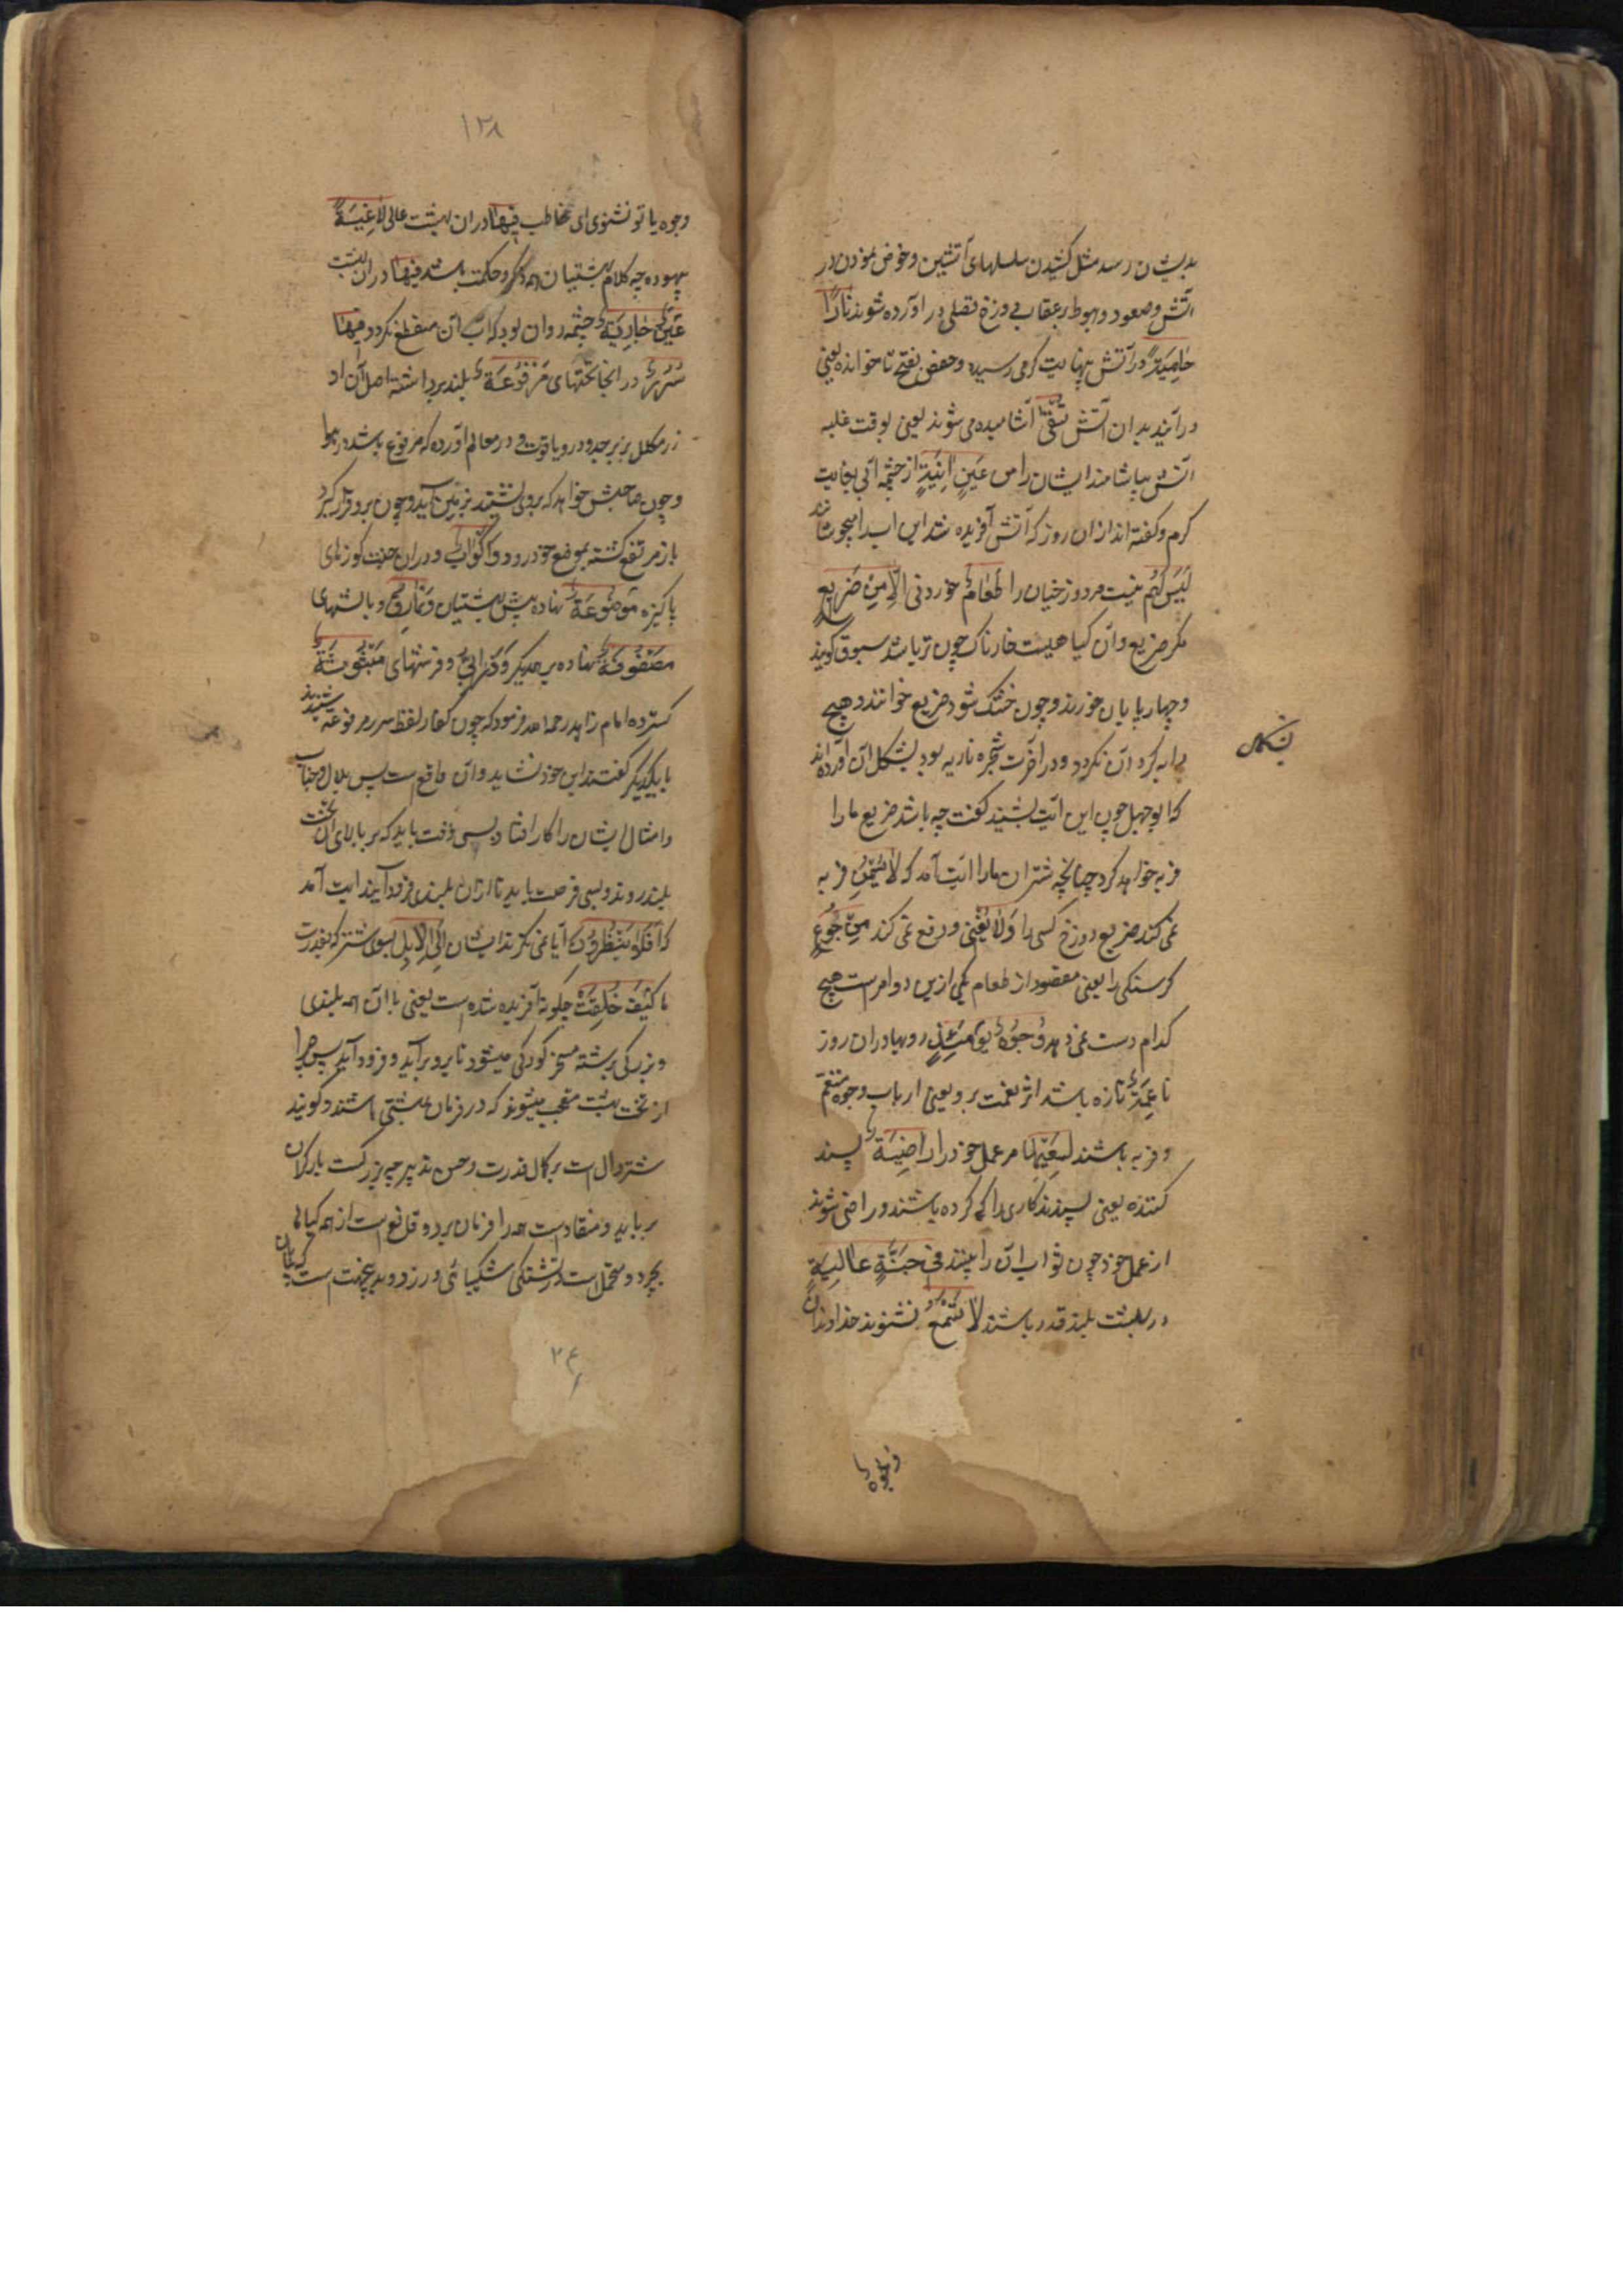 بدیشان رسد مثل کشیدن سلسلهای آتشین و خوض نمودن در
آتش و صعود و هبوط بر عقاب دوزخ تصلی در آورده شوند نَارًا
حَامِیَةً در آتش بنهایت گرمی رسیده و حفص بفتح تا خوانده یعنی
در آیند بدان آتش تُسْقٰی آشامیده می شوند یعنی بوقت غلبه
آتش بیاشامند ایشان را مِن عَیْنٍ اٰنِیَةٍ از چشمه آبی بغایت
گرم و گفته اند ازان روز که آتش آفریده شد این آب را میجوشانند
لَیْسَ لَهُمْ نیست مر دوزخیان را طَعَامٌ خوردنی اِلَّا مِنْ ضَرِیْعٍ
مگر ضریع و آن گیاهیست خارناک چون تر باشد شبرق گویند
و چهارپایان خورند و چون خشک شود ضریع خوانند و هیچ
دابه گرد آن نگردد و در آخرت شجره ناریه بود بشکل آن آورده اند
که ابوجهل چون این آیت بشنید گفت چه باشد ضریع ما را
فربه خواهد کرد چنانچه شتران ما را آیت آمد که لَا یُسْمِنُ فربه
نمی کند ضریع دوزخ کسی را وَلَا یُغْنِی و دفع نمی کند مِنْ جُوْعٍ
گرسنگی را یعنی مقصود از طعام یکی ازین دو امر است هیچ
کدام دست نمی دهد وُجُوْهٌ یَوْمَئِذٍ رویها در آن روز
نَاعِمَةٌ تازه باشد اثر نعمت برو یعنی ارباب وجوه متنعم
و فربه باشند لِسَعْیِهَا مر عمل خود را رَاضِیَةٌ پسند
کننده یعنی پسندند کاری را که کرده باشند و راضی شوند
از عمل خود چون ثواب آن را بینند فِی جَنَّةٍ عَالِیَةٍ
در بهشت بلند قدر باشند لَا تَسْمَعُ نشنوند خداوندان
وجوه یا
بشکل
۱۲۸
وجوه یا تو نشنوی ای مخاطب فِیْهَا در ان بهشت عالی لَاغِیَةً
بیهوده چه کلام بهشتیان همه ذکر و حکمت باشد فِیْهَا در ان بهشت
عَیْنٌ جَارِیَةٌ چشمه روان بود که آب آن منقطع نگردد فِیْهَا
سُرُرٌ در انجا تختهای مَرْفُوْعَةٌ بلند برداشته اصل آن از
زر مکلل بزبرجد و در و یاقوت و در معالم آورده که مرفوع باشد در هوا
و چون صاحبش خواهد که بروی نشیند بزمین آید و چون برو قرار گیرد
باز مرتفع گشته بموضع خود رود وَاَکْوَابٌ و دران جنت کوزهای
پاکیزه مَوْضُوْعَةٌ نهاده پیش بهشتیان وَنَمَارِقُ و بالشتهای
مَصْفُوْفَةٌ نهاده بر یکدیگر وَزَرَابِیُّ و فرشتهای مَبْثُوْثَةٌ
گسترده امام زاهد رحمه الله فرمود که چون کفار لفظ سرر مرفوعه شنیدند
با یکدیگر گفتند این خود نشاید و آن واقع است پس بلال و خباب
و امثال ایشان را کار افتاد بسی وقت باید که بر بالای آن تخت
بلند روند و بسی فرصت باید تا ازان بلندی فرود آیند آیت آمد
که اَفَلَا یَنْظُرُوْنَ آیا نمی نگرند ایشان اِلَی الْاِبِلِ بسوی شتر که بقدرت
ما کَیْفَ خُلِقَتْ چگونه آفریده شده است یعنی با آن همه بلندی
و بزرگی برشته مسخر کودکی میشود تا برو برآید و فرود آید پس چرا
از تخت بهشت متعجب میشوند که در فرمان بهشتی باشند و گویند
شتر دال است بر کمال قدرت و حسن تدبیر چه بزرگست بار گران
بر باید و منقاد است همه را فرمان برد و قانع است از همه گیاهها
بچرد و متحمل است در تشنگی شکیبائی ورزد و بدین جهت است
۲۴